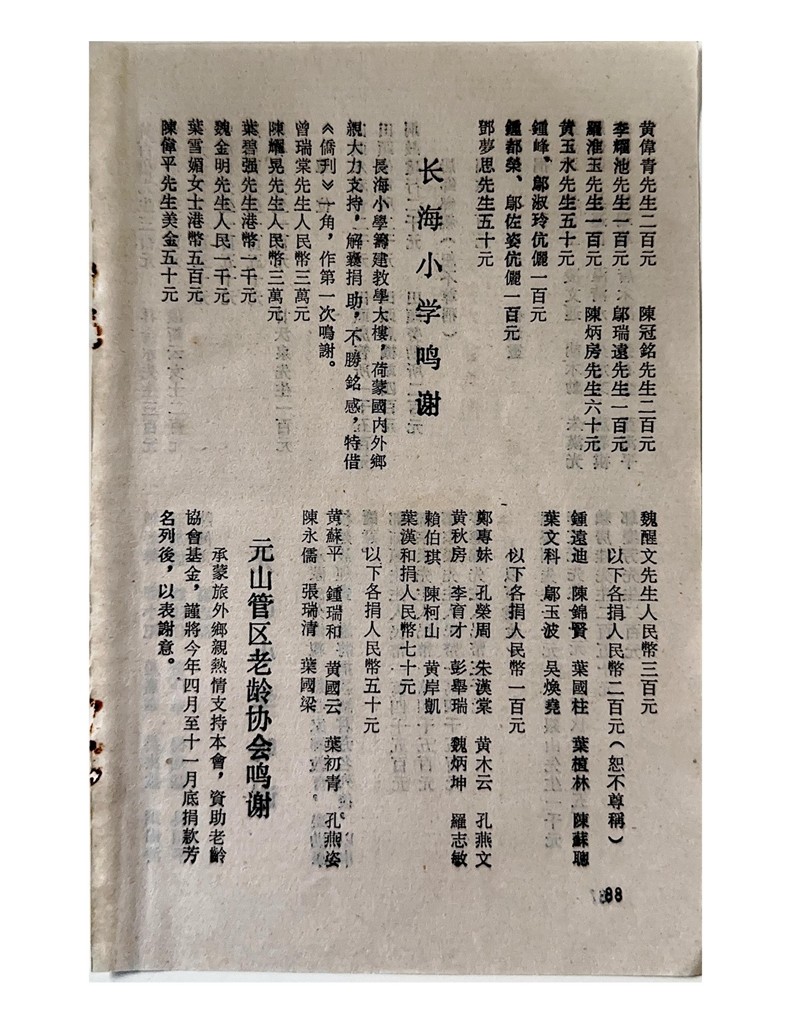 黄偉青先生二百元　陳冠銘先生二百元
李耀池先生一百元　鄔瑞遠先生一百元
羅淮玉先生一百元　陳炳房先生六十元
黄玉水先生五十元
鍾峰、鄔淑玲伉儷一百元
鍾都榮、鄔佐姿伉儷一百元
鄧夢思先生五十元
长海小学鸣谢
長海小學籌建教學大樓，荷蒙國内外鄉
親大力支持，解囊捐助，不勝銘感，特借
《僑刋》一角，作第一次鳴謝。
曾瑞棠先生人民幣三萬元
陳耀晃先生人民幣三萬元
葉碧强先生港幣一千元
魏金明先生人民一千元
葉雪媚女士港幣五百元
陳偉平先生美金五十元
魏醒文先生人民幣三百元
以下各捐人民幣二百元（恕不尊稱）
鍾遠迪　陳錦賢　葉國柱　葉植林　陳蘇聰
葉文科　鄔玉波　吴焕堯
以下各捐人民幣一百元
鄭專妹　孔榮周　朱漢棠　黄木云　孔燕文
黄秋房　李育才　彭舉瑞　魏炳坤　羅志敏
賴伯琪　陳柯山　黄岸凱
葉漢和捐人民幣七十元
以下各捐人民幣五十元
黄蘇平　鍾瑞和　黄國云　葉初青　孔燕姿
陳永儒　張瑞清　葉國梁
元山管区老龄协会鸣谢
承蒙旅外鄉親熱情支持本會，資助老齡
協會基金，謹將今年四月至十一月底捐款芳
名列後，以表謝意。
88